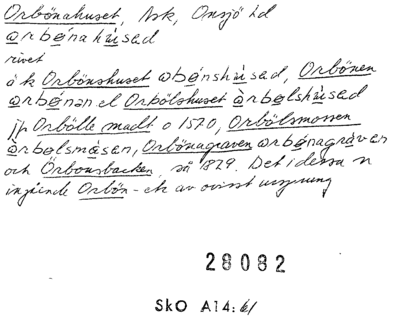 Orbönahuset, Ask, Onsjö hd
ơrbónahúsəd
rivet
äk Orbönshuset ơbónshùsəd, Orbönen
ơrbónən el Orbölshuset àrbơlshùsəd
jfr Orbölle madt o 1570, Orbölsmossen
àrbơlsmåsən, Orbönagraven ơrbónagràvən
och Örbonsbacken, så 1829. Det i dessa n
ingående Orbön- etc av ovisst ursprung
28082
SkO A14:61